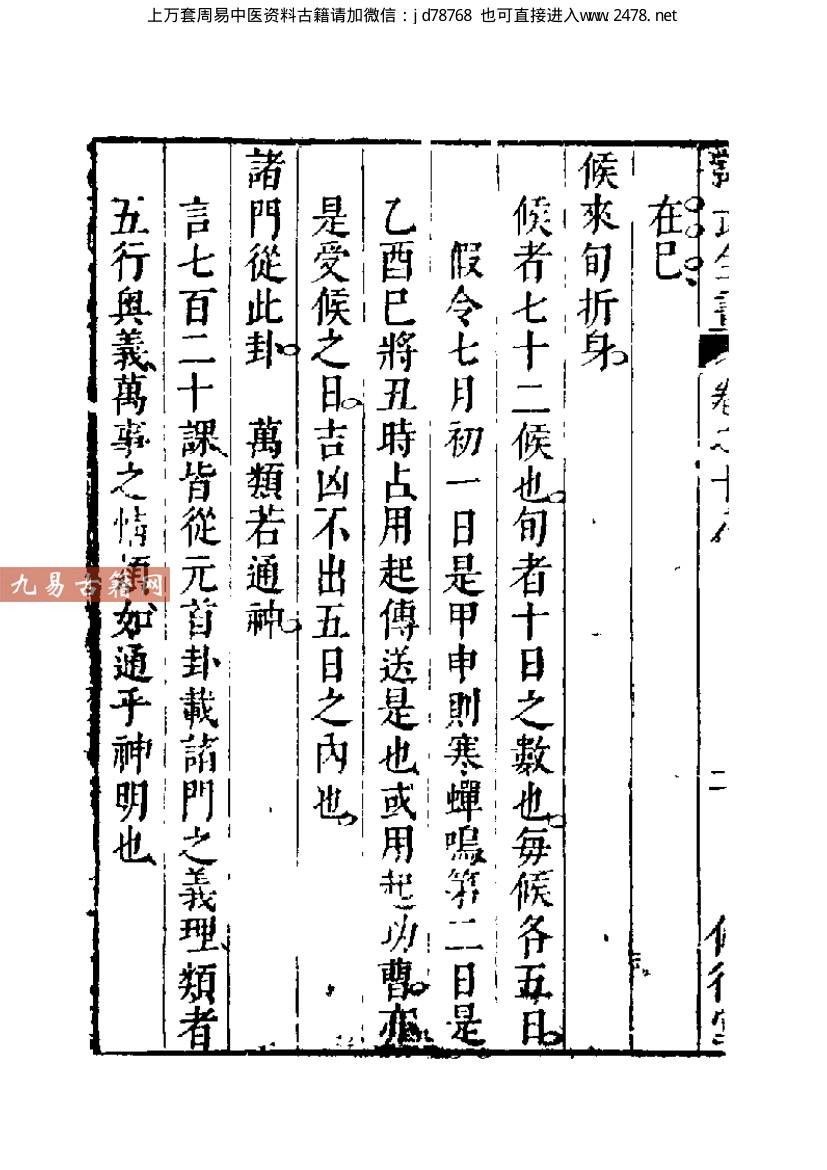 上万套周易中医资料古籍请加微信：jd78768 也可直接进入www.2478.net
在巳
候來旬折身。
候者七十二候也。旬者十日之數也。每候各五日。
假令七月初一日是甲申則寒蟬鳴第二日是
乙酉巳將丑時占用起傳送是也或用起功曹。亦
是受候之日。吉凶不出五日之內也。
諸門從此卦。 萬類若通神。
言七百二十課皆從元首卦載諸門之義理、類者
五行奧義、萬事之情類如通乎神明也
九易古籍网